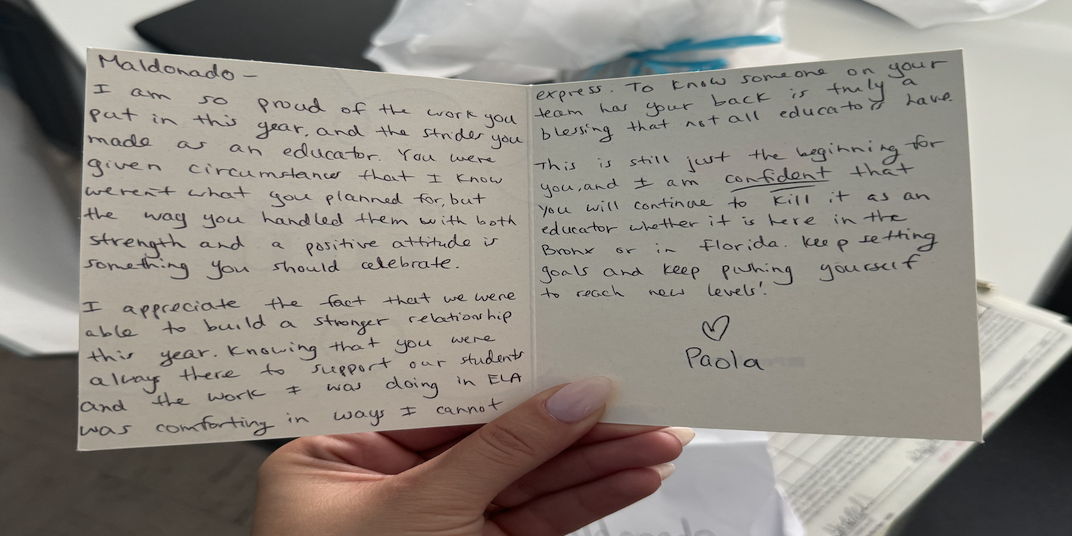 Maldonado -
I am so proud of the work you
put in this year, and the strides you
made as an educator. You were
given circumstances that I know
weren't what you planned for, but
the way you handled them with both
strength and a positive attitude is
something you should celebrate.
I appreciate the fact that we were
able to build a stronger relationship
this year. Knowing that you were
always there to support our students
and the work I was doing in ELA
was comforting in ways I cannot
express. To know someone on your
team has your back is truly a
blessing that not all educators have.
This is still just the beginning for
you, and I am confident that
you will continue to kill it as an
educator whether it is here in the
Bronx or in Florida. Keep setting
goals and keep pushing yourself
to reach new levels!
Paola